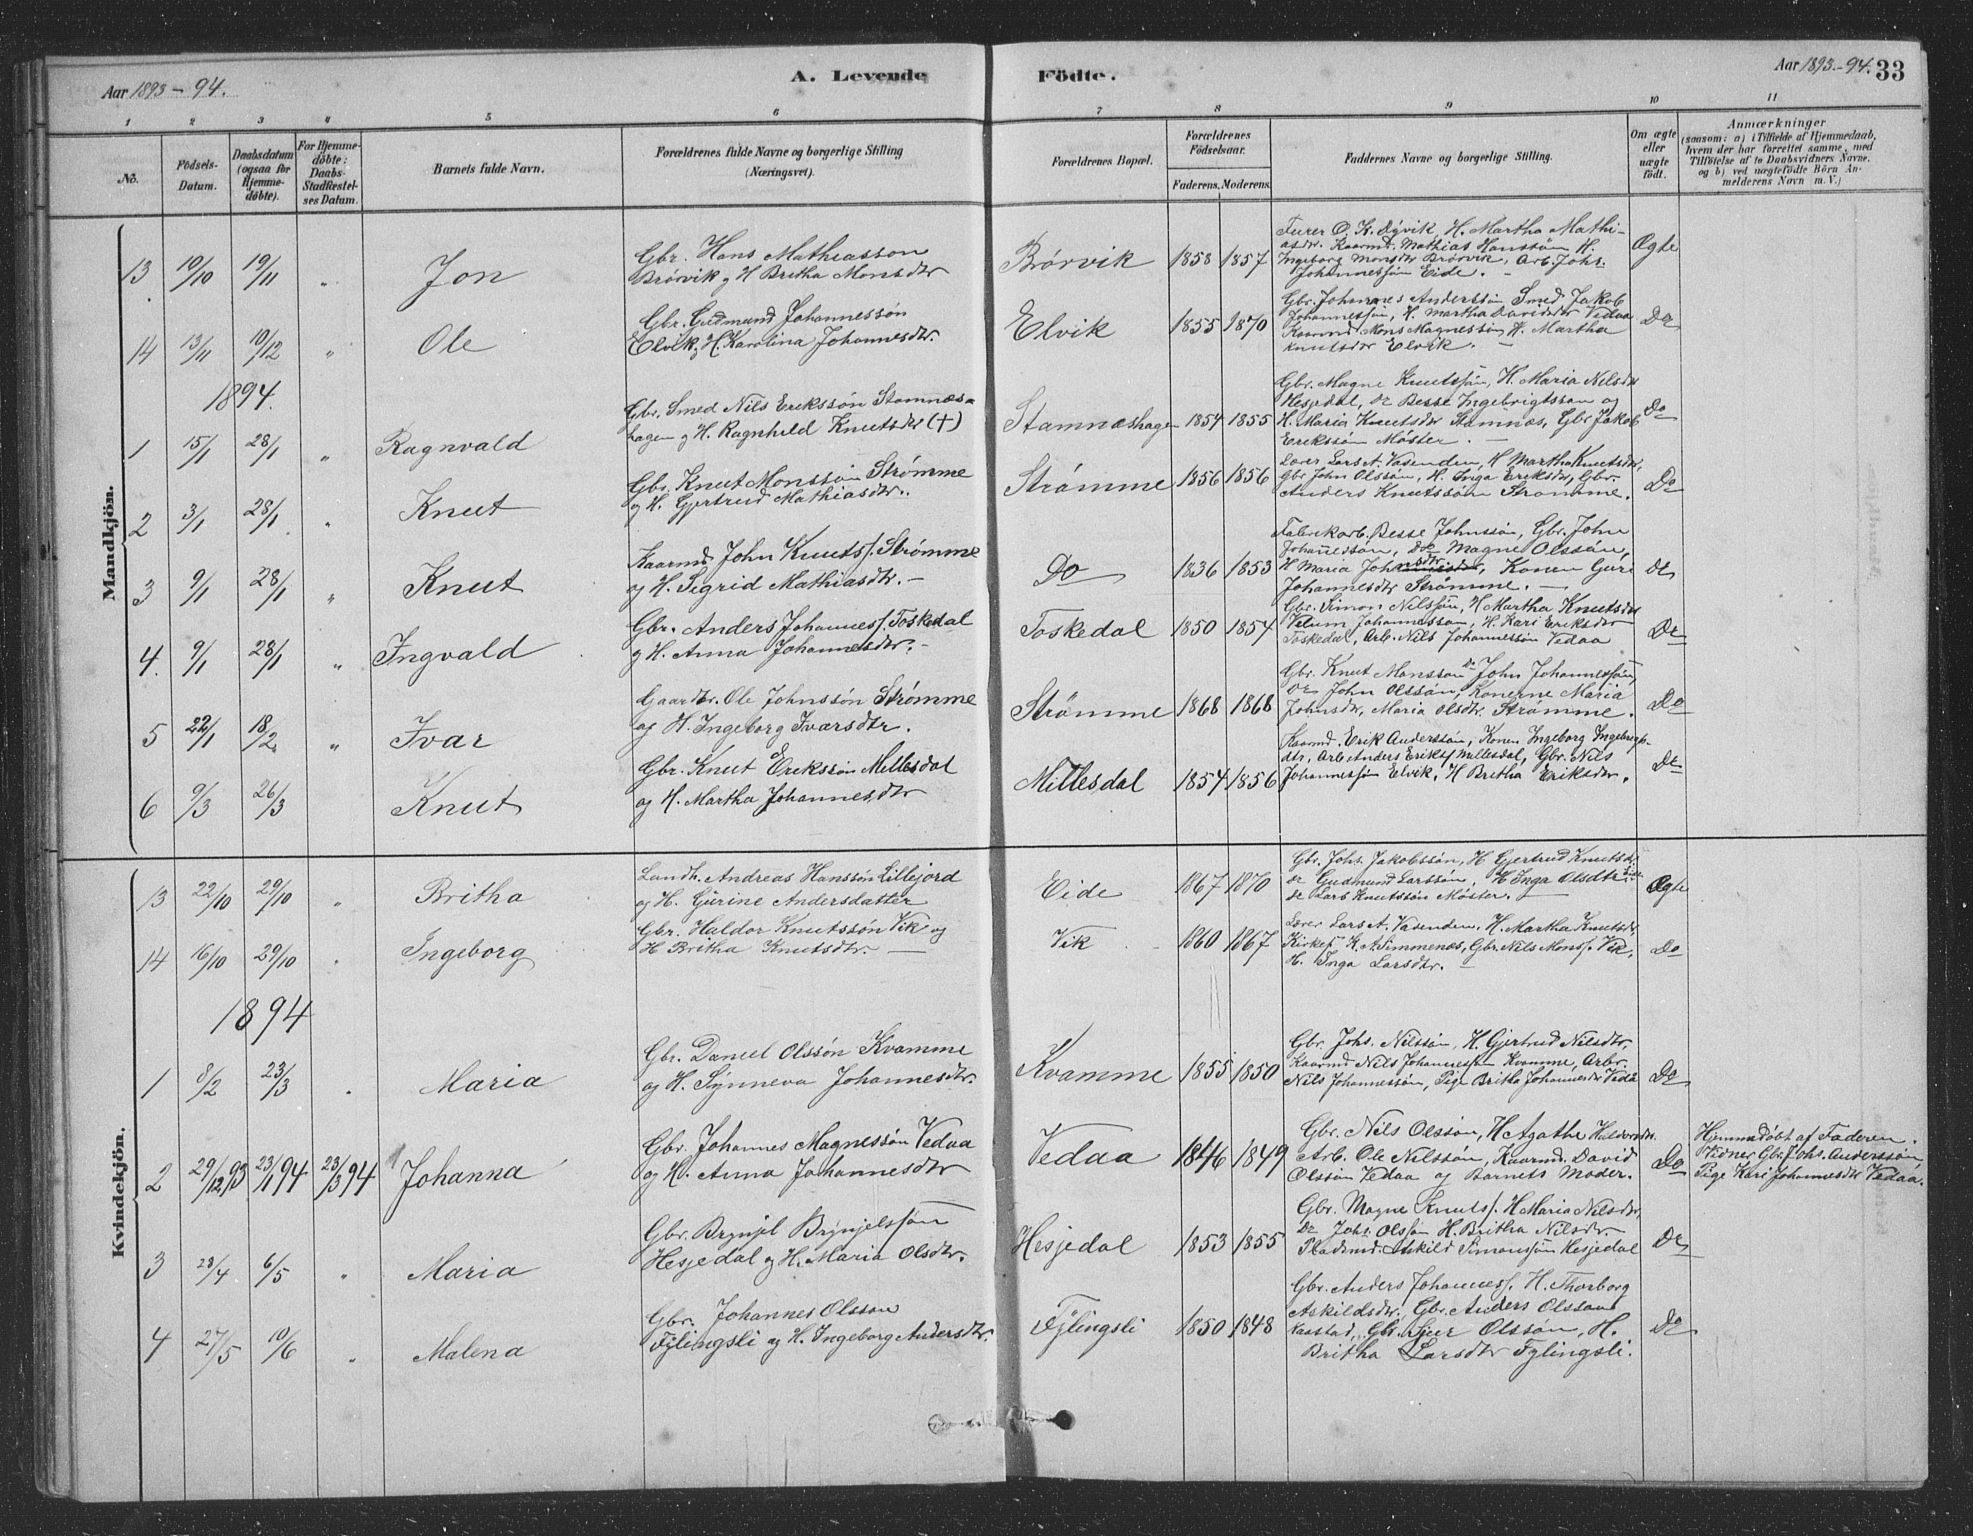 Aar 1893 - 94.
A. Levende Födte.
Aar 1893.-94. 33
1 2 3 4 5 6 7 8 9 10 11
No.
Födsels-
Datum.
Daabsdatum
(ogsaa for
Hjemme-
döbte).
For Hjemme-
döbte:
Daabs-
Stadfæstel-
ses Datum.
Barnets fulde Navn.
Forældrenes fulde Navne og borgerlige Stilling
(Næringsvei).
Forældrenes Bopæl.
Forældrenes
Födselsaar.
Faderens. Moderens.
Faddernes Navne og borgerlige Stilling.
Om ægte
eller
uægte
födt.
Anmærkninger
(saasom: a) i Tilfælde af Hjemmedaab,
hvem der har forrettet samme, med
Tilföielse af to Daabsvidners Navne.
og b) ved uægtefödte Börn An-
melderens Navn m. V.)
Mandkjön.
13 19/10 19/11 " Jon
Gbr. Hans Mathiasson
Brørvik og H Britha Monsdtr
Brørvik 1858 1857
H. Martha Mathi-
asdr. Kaarmd. Mathias Hanssøn H.
Ingeborg Monsdtr Brørvik, Arb. Johs.
Johannessøn Eide. -
Ægte
14 13/11 10/12 " Ole
Gbr. Gudmund Johannessøn
Elvik, H. Karolina Johannesdtr.
Elvik 1855 1870
Gbr. Johannes Anderssøn Smed Jakob
Johannessøn, H. Martha Davidsdtr Vedaa
Kaarmd. Mons Magnessøn H. Martha
Knutsdtr Elvik. -
Do
1894.
1 15/1 28/1 " Ragnvald
Gbr. Smed Nils Erikssøn Stamnæs-
hagen og H. Ragnhild Knutsdtr (+)
Stamnæshagen 1854 1855
Gbr. Magne Knutssøn, H. Maria Nilsdtr
Hesjedal, Do Besse Ingebrigtsson og
H. Maria Knutsdtr Stamnæs, Gbr Jakob
Erikssøn Møster. -
Do
2 3/1 28/1 " Knut
Gbr. Knut Monssøn Strømme
og H. Gjertrud Mathiasdtr.
Strømme 1856 1856
Lærer Lars A. Vasenden, H Martha Knutsdtr,
Gbr John Olssøn, H. Inga Eriksdtr, Gbr.
Anders Knutssøn Strømme.
Do
3 9/1 28/1 " Knut
Kaarmd John Knuts. Strømme
og H. Sigrid Mathiasdtr. -
Do 1836 1853
Fabrikarb. Besse Johnssøn, Gbr. John
Johannessøn, Do Magne Olssøn,
H Maria Johnsdtr, Konen Guri
Johannesdtr Strømme. -
Do
4. 9/1 28/1 " Ingvald
Gbr. Anders Johannes. Toskedal
og H. Anna Johannesdtr. -
Toskedal 1850 1854
Gbr. Simon Nilssøn, H Martha Knutsdtr
Vilum Johannessøn, H. Kari Eriksdtr
Toskedal, Arb. Nils Johannessøn Vedaa
Do
5 22/1 18/2 " Ivar
Gaardbr. Ole Johnssøn Strømme
og H. Ingeborg Ivarsdtr.
Strømme 1868 1868
Gbr. Knut Monsson Do John Johannessøn
Do John Olssøn, Konerne Maria
Johnsdtr, Maria Olsdtr Strømme.
Do
6 9/3 26/3 Knut
Gbr. Knut Erikssøn Millesdal
og H. Martha Johannesdtr
Millesdal 1854 1856
Kaarmd. Erik Anderssøn, Konen Ingeborg Ingebrigts-
dtr, Arb. Anders Eriks. Millesdal, Gbr. Nils
Johannessøn Elvik, H Britha Eriksdtr.
Do
Kvindekjön.
13 22/10 29/10 " Britha
Landh. Andreas Hanssøn Lillejord
og H. Gurine Andersdatter
Eide 1867 1870
Gbr. Johs. Jakobssøn, H Gjertrud Knutsdtr
do Gudmund Larssøn, H Inga Olsdtr Eide
do Lars Knutssøn Møster. -
Ægte
14 16/10 29/10 " Ingeborg
Gbr. Haldor Knutssøn Vik og
H Britha Knutsdtr. -
Vik 1860 1867
Lærer Lars A. Vasenden, H. Martha Knutsdtr
Kirkes. K. A. Simmenæs, Gbr. Nils Mons. Vik.
H. Inga Larsdtr. -
Do
1894
1 8/2 23/3 " Maria
Gbr. Daniel Olssøn Kvamme
og H. Synneva Johannesdtr.
Kvamme 1855 1850
Gbr. Johs. Nilssøn, H. Gjertrud Nilsdtr,
Kaarmd Nils Johannessøn Kvamme, Arbr.
Nils Johannessøn, Pige Britha Johannesdtr Vedaa
Do
2 29/12 93 23/1 94 23/3 94 Johanna
Gbr. Johannes Magnessøn Vedaa
og H. Anna Johannesdtr
Vedaa 1846 1849
Gbr. Nils Olssøn, H Agathe Haldorsdtr.
Arb. Ole Nilssøn, Kaarmd. David
Olssøn Vedaa og Barnets Moder.
Do
Hjemmedøbt af Faderen.
Vidner Gbr. Johs. Anderssøn
Pige Kari Johannesdtr Vedaa.
3 28/4 6/5 " Maria
Gbr. Brynjel Brynjelssøn
Hesjedal og H. Maria Olsdtr.
Hesjedal 1853 1855
Gbr. Magne Knuts. H Maria Nilsdtr,
Do Johs. Olssøn H. Britha Nilsdtr.
Pladsmd. Askild Simonssøn Hesjedal
Do
4 27/5 10/6 " Malena
Gbr. Johannes Olsson
Fylingsli og H. Ingeborg Andersdtr.
Fylingsli 1850 1848
Gbr. Anders Johannes. H. Thorborg
Askildsdtr. Gbr. Anders Olsson
Kaastad, Gbr. Olssøn, H.
Britha Larsdtr Fylingsli.
Do